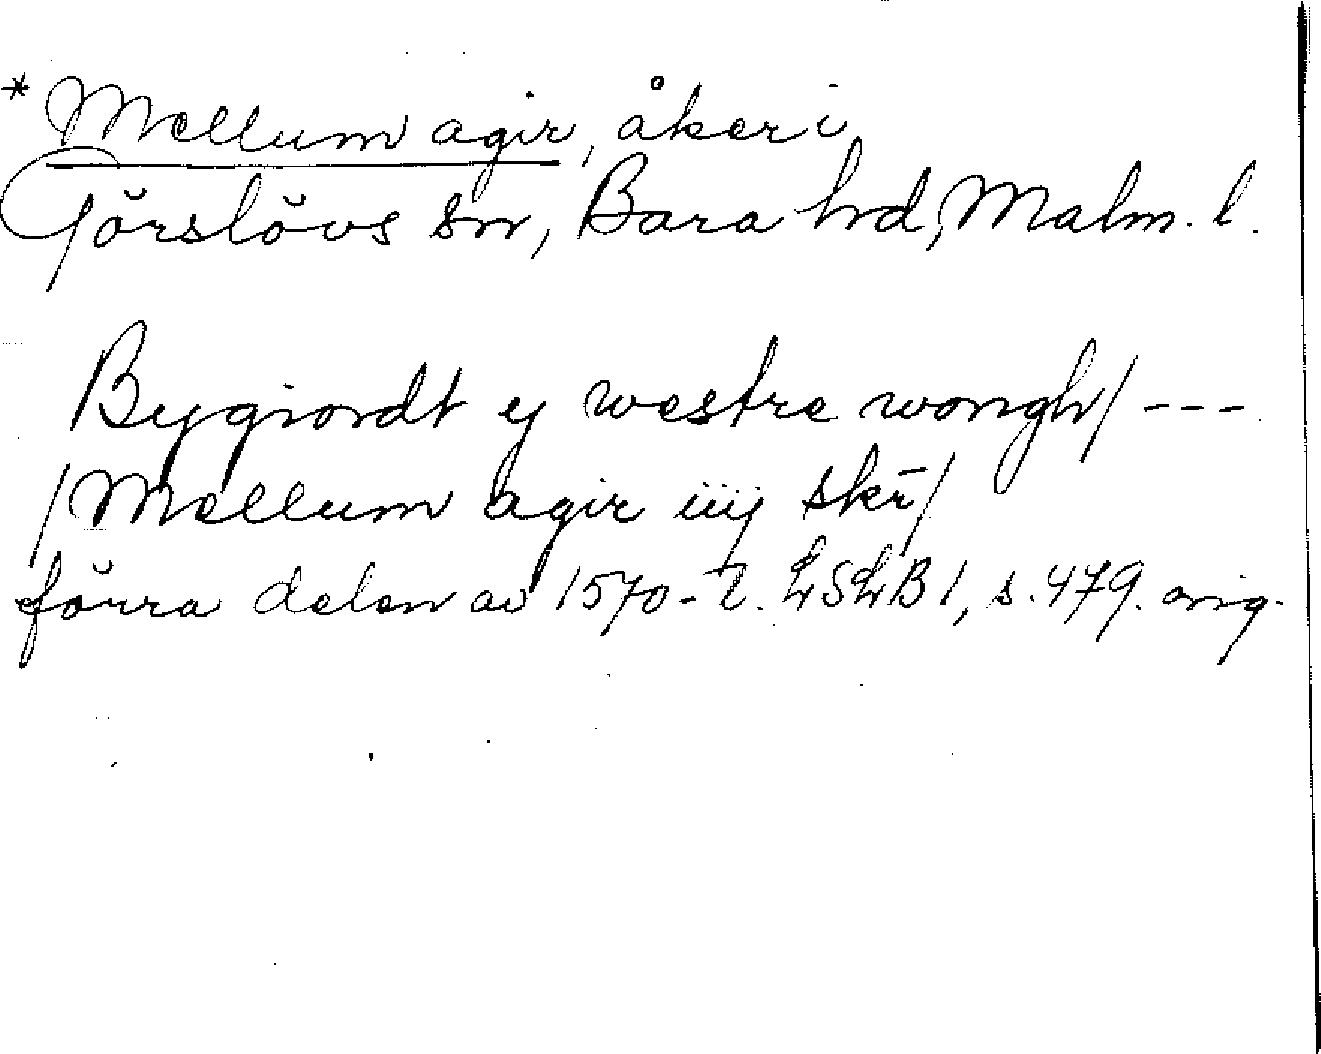 * Mellum agir, åker i
Görslövs sn, Bara hrd, Malm. l.
Bygiordt ij westre wongh/ ---
/Mellum agir iiij skr̄/
förra delen av 1570-t. LSLB 1, s. 479. orig.